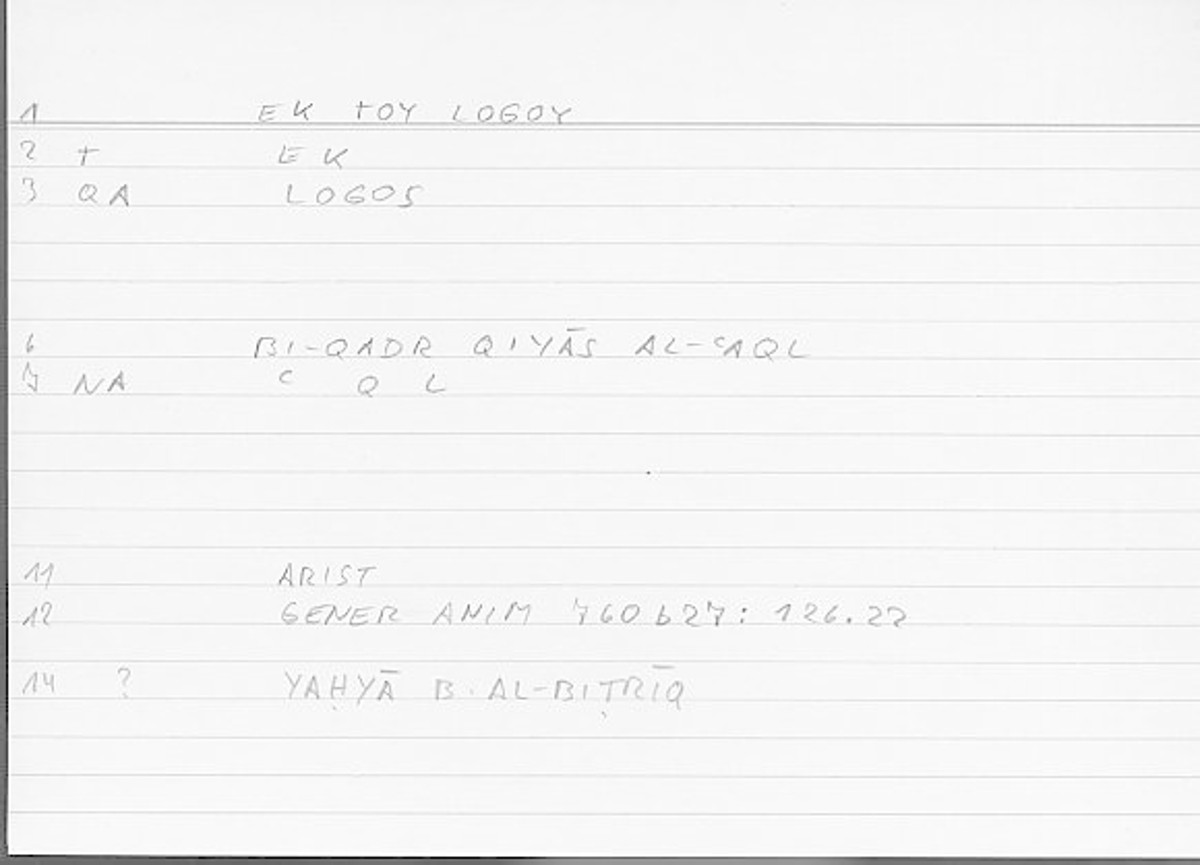 1 EK TOY LOGOY
2 T EK
3 QA LOGOS
6 BI-QADR QIYĀS AL-ʿAQL
7 NA ʿ Q L
11 ARIST
12 GENER ANIM 760b27: 126.22
14 ? YAḤYĀ B. AL-BIṬRĪQ